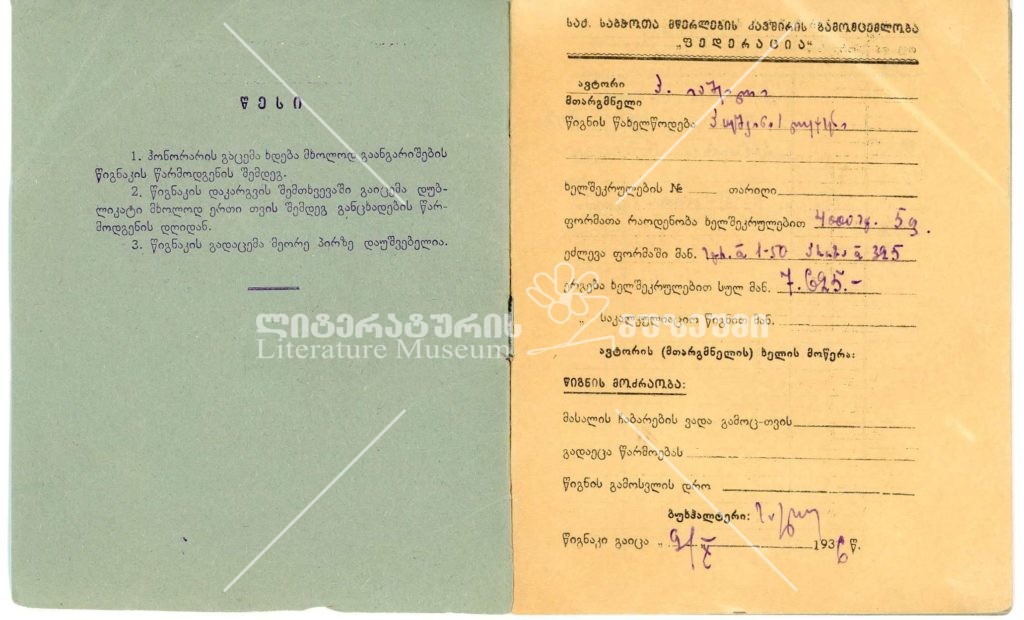 წესი
1. ჰონორარის გაცემა ხდება მხოლოდ გაანგარიშების
წიგნაკის წარმოდგენის შემდეგ.
2. წიგნაკის დაკარგვის შემთხვევაში გაიცემა დუბ-
ლიკატი მხოლოდ ერთი თვის შემდეგ განცხადების წარ-
მოდგენის დღიდან.
3. წიგნაკის გადაცემა მეორე პირზე დაუშვებელია.
ლიტერატურის მუზეუმი
Literature Museum
საქ. საბჭოთა მწერლების კავშირის გამომცემლობა
„ფედერაცია“
ავტორი პ. იაშვილი
მთარგმნელი
წიგნის წახელწოდება პუშკინის
ხელშეკრულების № თარიღი
ფორმათა რაოდენობა ხელშეკრულებით 4000 5 ფ.
ეძლევა ფორმაში მან. 1-50 325
ერგება ხელშეკრულებით სულ მან. 7.625.-
„ საკალკულიაციო წიგნით მან.
ავტორის (მთარგმნელის) ხელის მოწერა:
წიგნის მოძრაობა:
მასალის ჩაბარების ვადა გამოც-თვის
გადაეცა წარმოებას
წიგნის გამოსვლის დრო
ბუხჰალტერი:
წიგნაკი გაიცა „ 9/X 1936 წ.